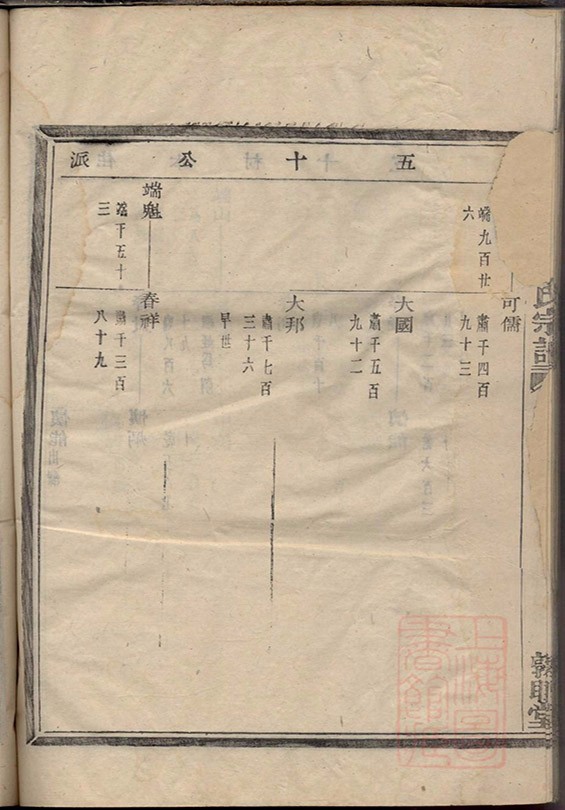 五十公派
端九百廿
六
可儒
肅千四百
九十三
大國
肅千五百
九十二
大邦
肅千七百
三十六
早世
端魁
端千五十
三
春祥
肅千三百
八十九
氏宗譜
敦睦堂
上海圖書館藏